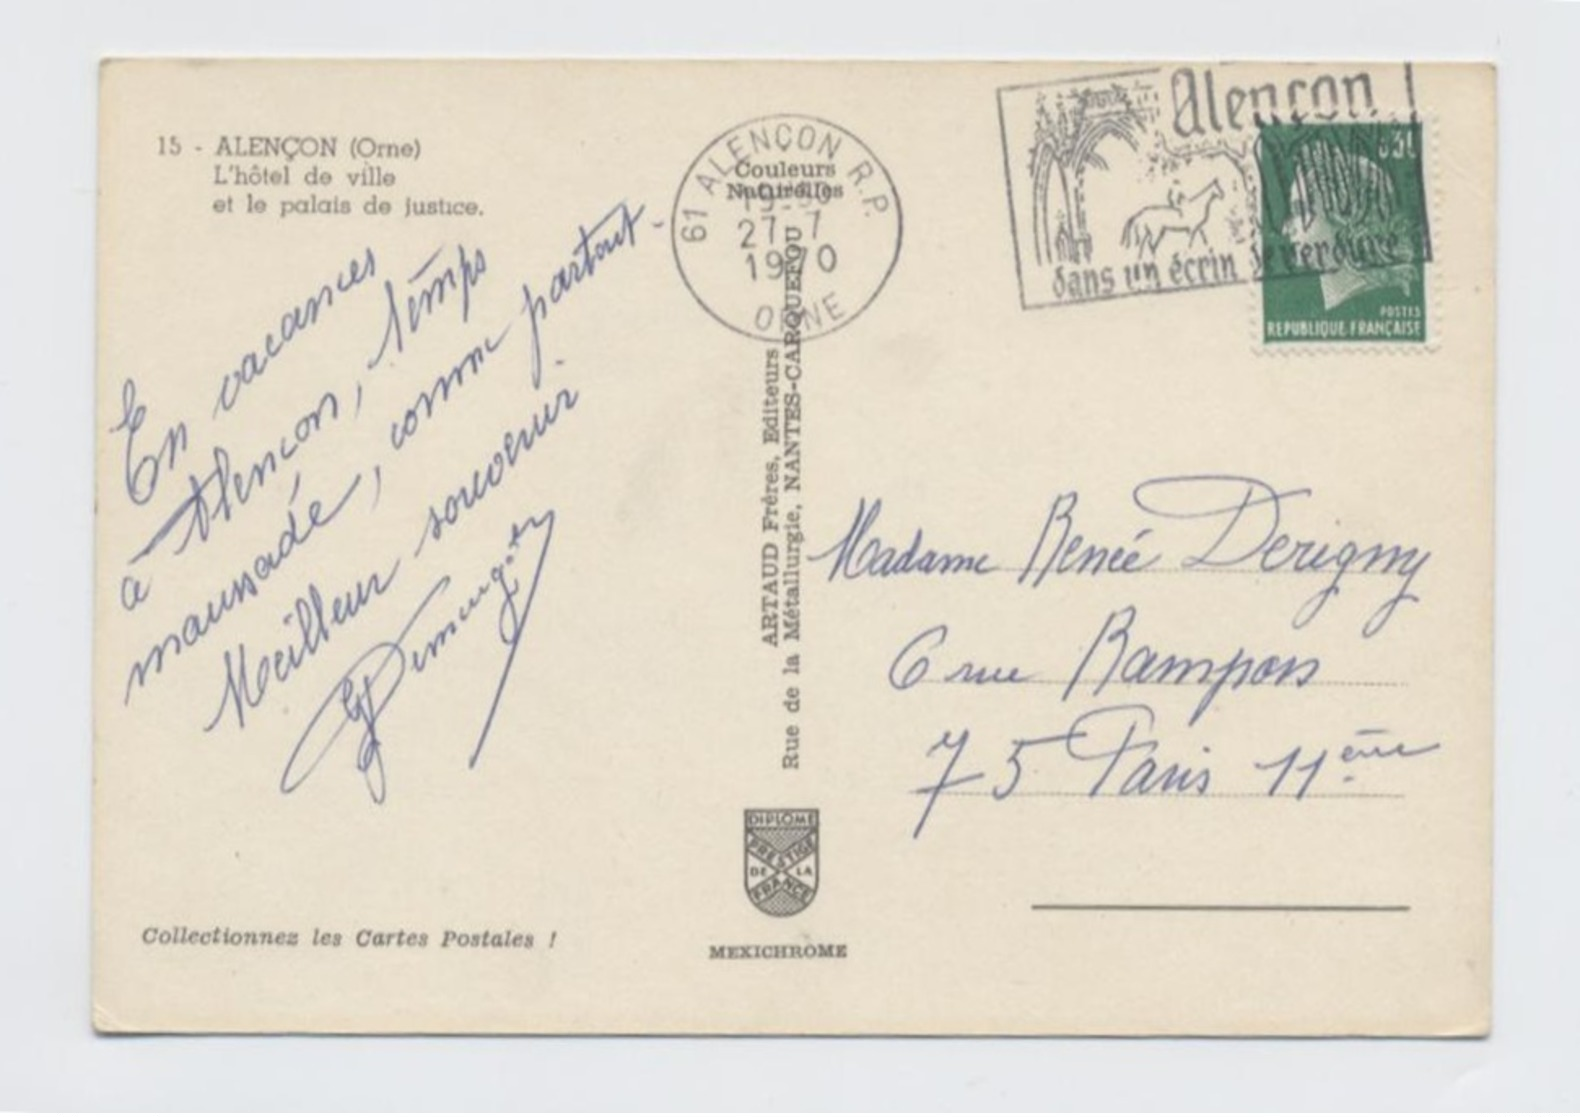 15 - ALENÇON (Orne)
L'hôtel de ville
et le palais de justice.
En vacances
à Alençon, temps
maussade, comme partout -
Meilleur souvenir
Couleurs
Naturelles
61 ALENÇON R.P.
27-7
1970
ORNE
Alençon
dans un écrin de verdure
POSTES
REPUBLIQUE FRANÇAISE
ARTAUD Frères, Editeurs
Rue de la Métallurgie, NANTES-CARQUEFOU
Madame Renée Derigny
6 rue Rampon
75 Paris 11ème
DIPLOME
PRESTIGE
DE LA
FRANCE
MEXICHROME
Collectionnez les Cartes Postales !